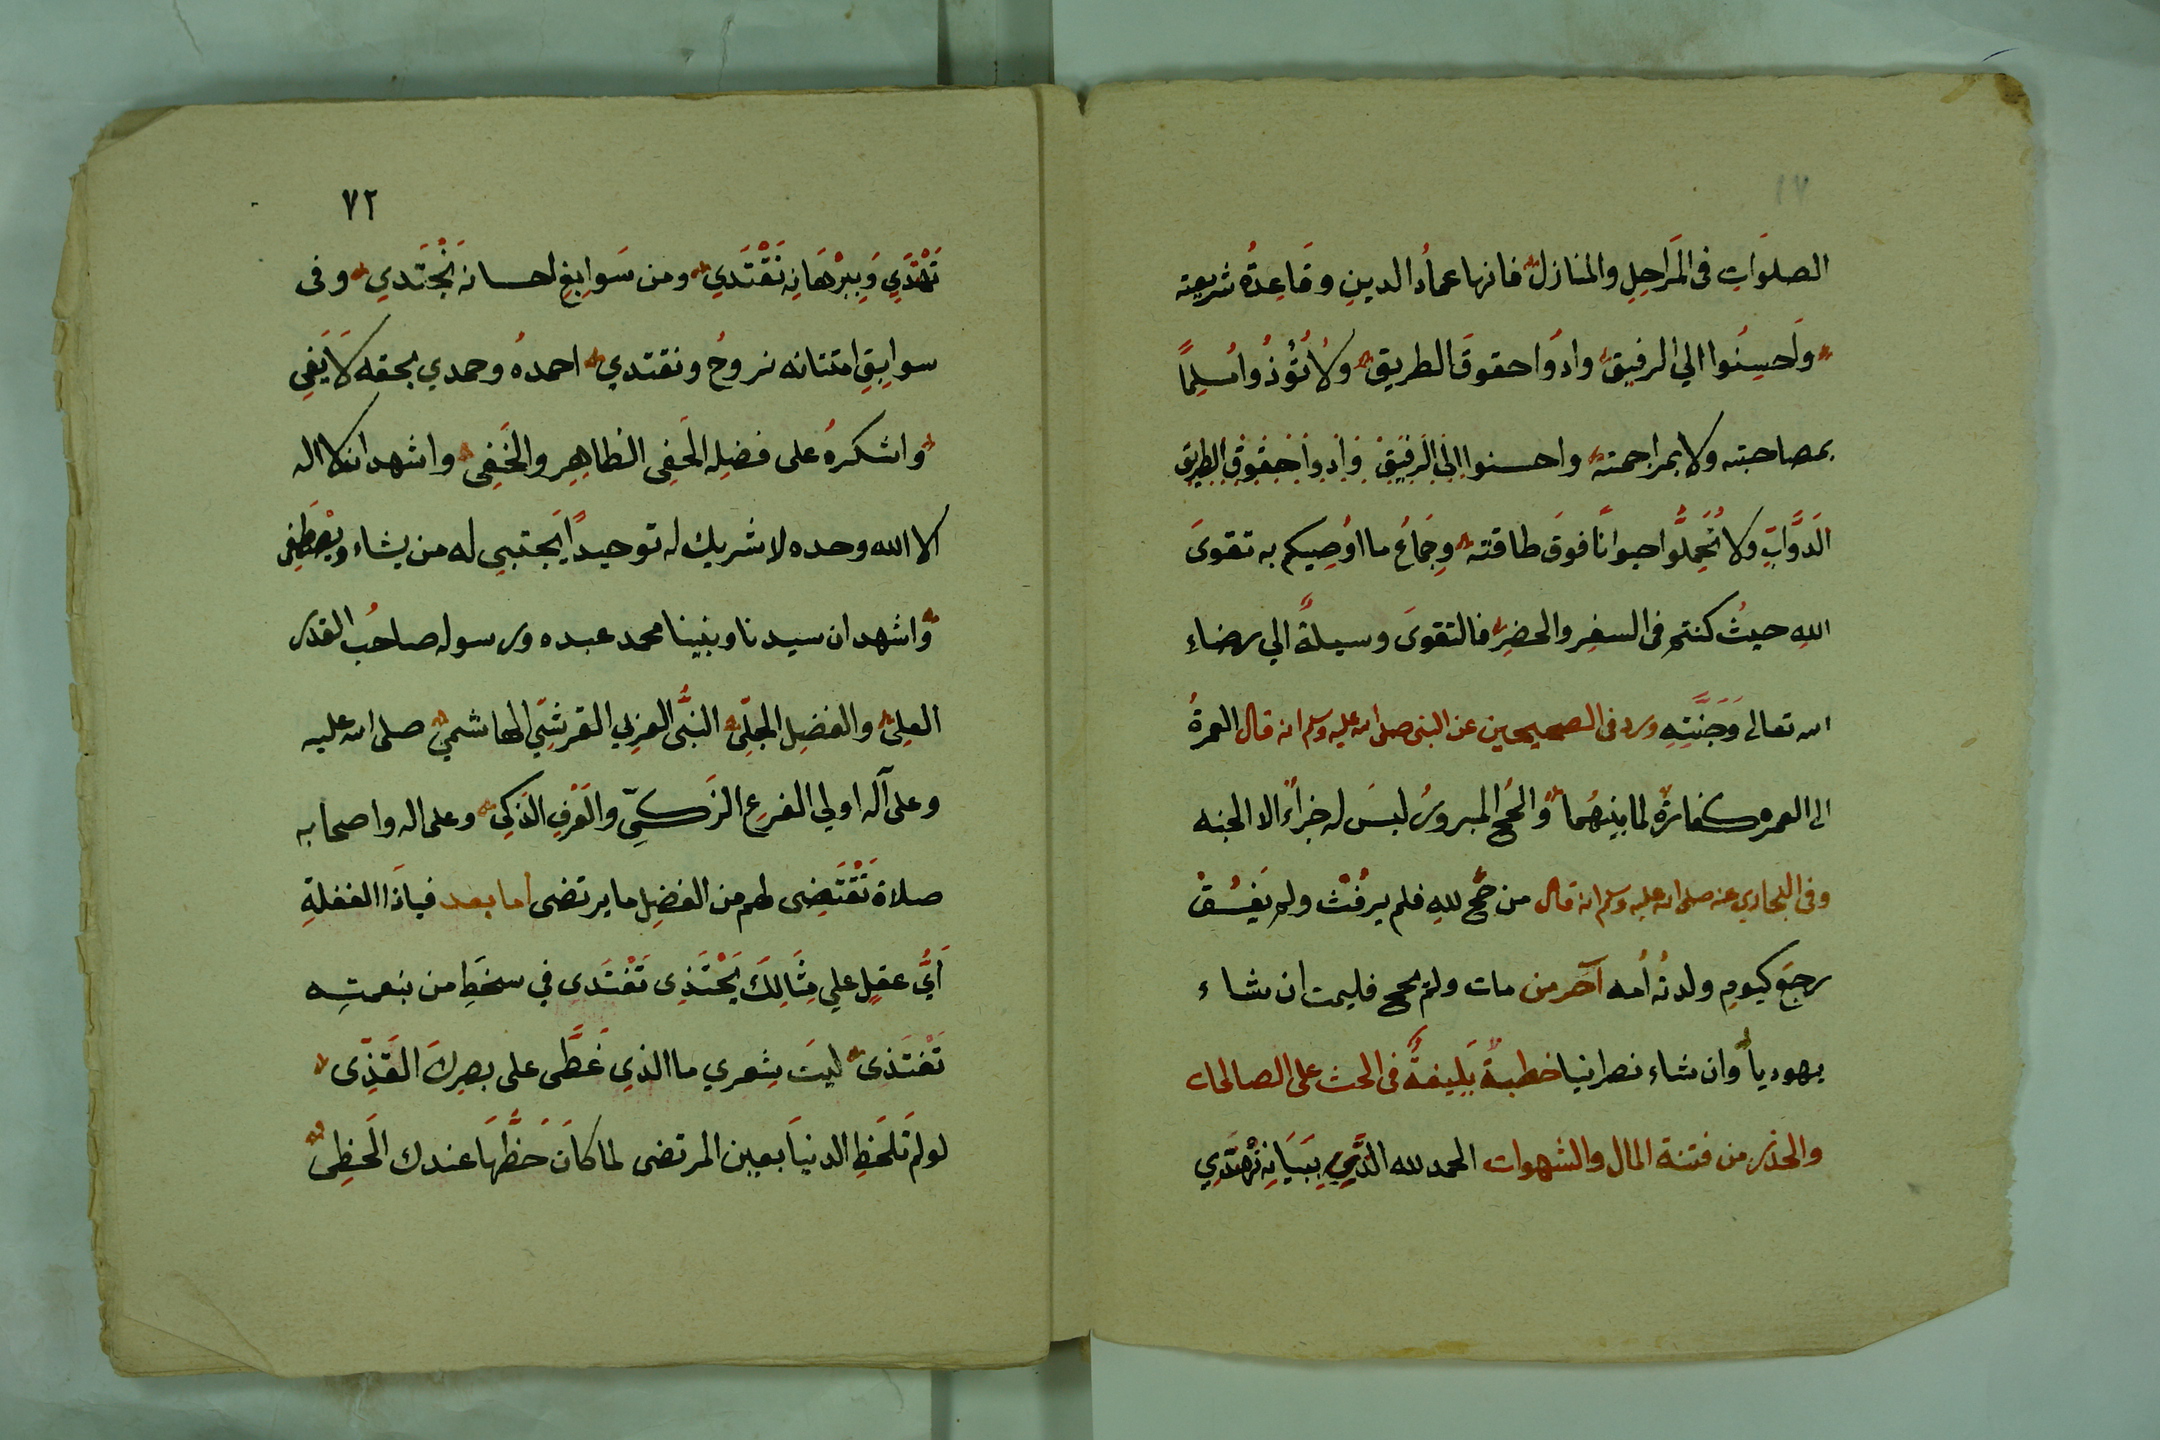 الصلوَاتِ فى المَراحِلِ والمنازل فانها عمادُ الدينِ وقَاعِدةُ شريعته
وَاحسِنُوا الي الرفيق وادوا حقوقَ الطريق ولا تُؤْذُوا مُسلِمًا
بمصاحبته ولا بمزاحمته واحسنوا الى الرفيق وادوا حقوق الطريق
الدَّوَّابِّ ولا تُحَمِلُّوا حيوانًا فوقَ طاقته وجَمَاعُ ما اوُصِيكم به تقوىَ
اللهِ حيثُ كنتم فى السفِر والحضِر فالتقوىَ وسيلةٌ الي رضاءِ
الله تعالى وَجَنَّتِهِ ورد فى الصحيحين عن النبى صلى الله عليه وسلم انه قال العمرةُ
الى العمره كفارةٌ لما بينهُما والحَج المبرورُ ليسَ له جزاءٌ الا الجنه
وفى البخاري عنه صلى الله عليه وسلم انه قال من حَج للهِ فلم يرفُثْ ولم يَفسُقْ
رجعَ كيومِ ولدتُه اُمه آخر من مات ولم يحج فليمت ان شاء
يهودياً وان شاء نصرانيا خطبةٌ بَلِيغةٌ فى الحث على الصالحات
والحذر من فتنة المال والشهوات الحمد لله الذي بِبَيَانِه نَهْتَدِي
٧٢
نَهْتَدِي وَبِبرْهَانِه نَقْتَدِي ومن سَوابغِ احسانه نَجْتَدِي وفى
سوابِقِ امتنانه نروحُ ونقتدي احمدهُ وحمدي بحقه لَا يَفِي
واشكرهُ على فضلِه الحَفِى الظاهِرِ والخَفِى واشهد ان لا اله
الا الله وحده لا شريك له توحيدًا يَجتبىِ له من يشاء ويَصْطَفِى
واشهد ان سيدنا ونبينا محمد عبده ورسوله صاحُب القدر
العلِى والفضلِ الجلِّى النبُّى العزبي القرشِّي الهاشمي صلى الله عليه
وعلى آله اولي الفرعِ الزَكىِّ والعَرْفِ الذكِى وعلى اله واصحابه
صلاة تَقْتَضِى لهم من الفضلِ ما يرتضى اما بعد فياذَا الغفلةِ
اَيُّ عقلٍ علي مِثَالِكَ يَحْتَذِى تَغْتَدى في سخَطِ من بنعمتِه
تَغْتَذى ليتَ شِعري ما الذيِ غَطَّى على بصرِكَ القَذِّى
لو لم تَلحَظِ الدنيَا بعين المرتضى لما كانَ حَظُّهَا عندك الحَظِى